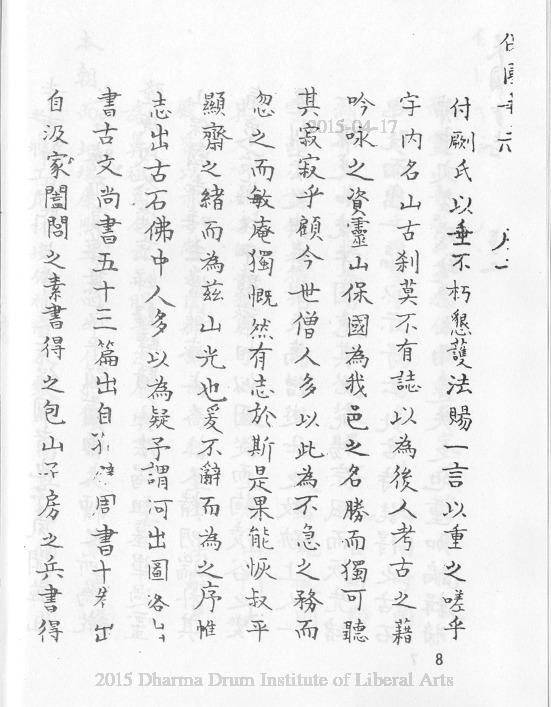 付劂氏以垂不朽懇護法賜一言以重之嗟乎
宇内名山古刹莫不有誌以為後人考古之藉
吟咏之資靈山保國為我邑之名勝而獨可聽
其寂寂乎顧今世僧人多以此為不急之務而
忽之而敏庵獨慨然有志於斯是果能恢叔平
顯齋之緒而為茲山光也爰不辭而為之序惟
志出古石佛中人多以為疑予謂河出圖洛出
書古文尚書五十三篇出自孔壁周書十卷出
自汲家闔閭之素書得之包山子房之兵書得
2015-04-17
8
2015 Dharma Drum Institute of Liberal Arts